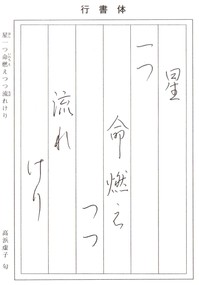 行書体
星
一つ
命燃えつつ
流れ
けり
星一つ命燃えつつ流れけり
高浜虚子 句